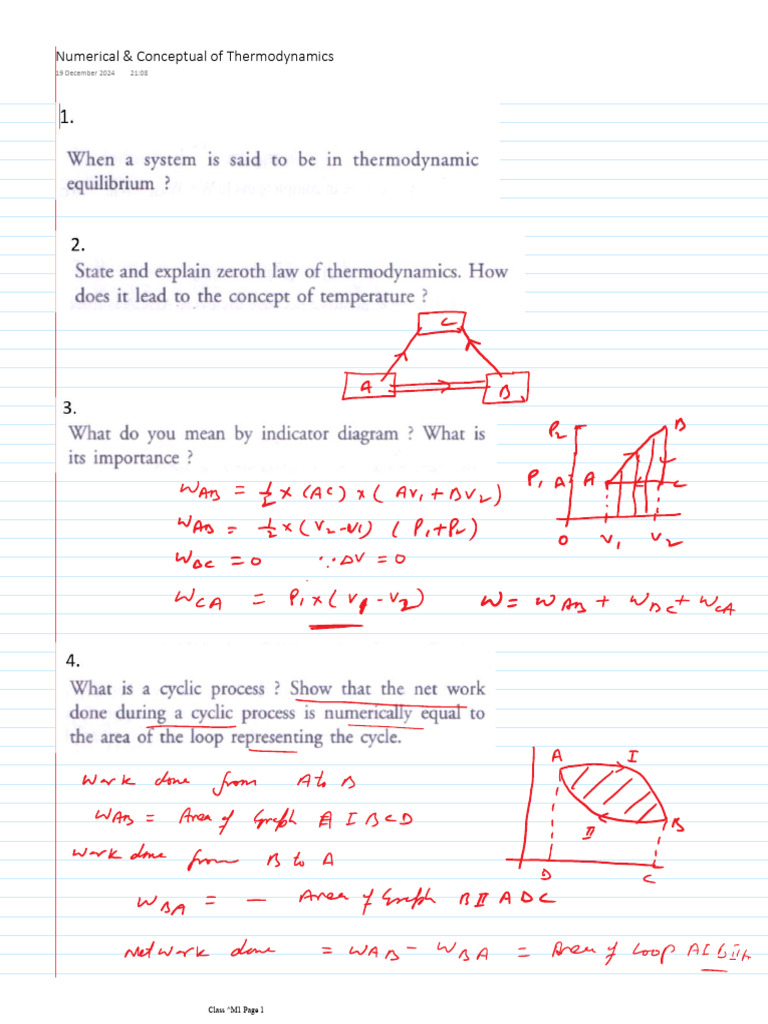 Numerical & Conceptual of Thermodynamics
19 December 2024 21:08
1.
When a system is said to be in thermodynamic
equilibrium ?
2.
State and explain zeroth law of thermodynamics. How
does it lead to the concept of temperature ?
C
A B
3.
What do you mean by indicator diagram ? What is
its importance ?
P2 B
P1 A A C
O V1 V2
WAB = 1/2 × (AC) × (AV1 + BV2)
WAB = 1/2 × (V2-V1) (P1+P2)
WBC = 0 ∵ ΔV = 0
WCA = P1 × (V1 - V2) W = WAB + WBC + WCA
4.
What is a cyclic process ? Show that the net work
done during a cyclic process is numerically equal to
the area of the loop representing the cycle.
A I
II B
D C
Work done from A to B
WAB = Area of Graph A I B C D
Work done from B to A
WBA = - Area of Graph B II A D C
Net work done = WAB - WBA = Area of Loop A I B II A
Class ^M1 Page 1